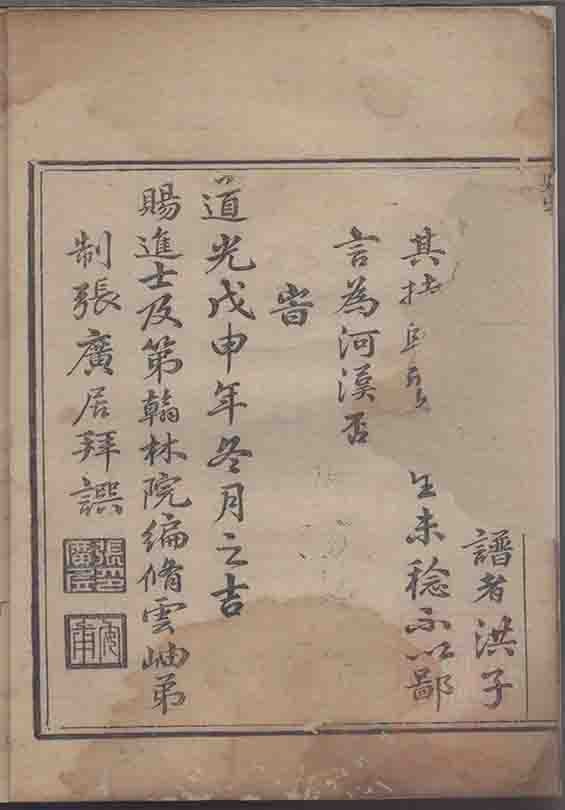 譜者洪子
其拙 生未稔不以鄙
言為河漢否
旹
道光戊申年冬月之吉
賜進士及第翰林院編脩雲岫弟
制張廣居拜譔